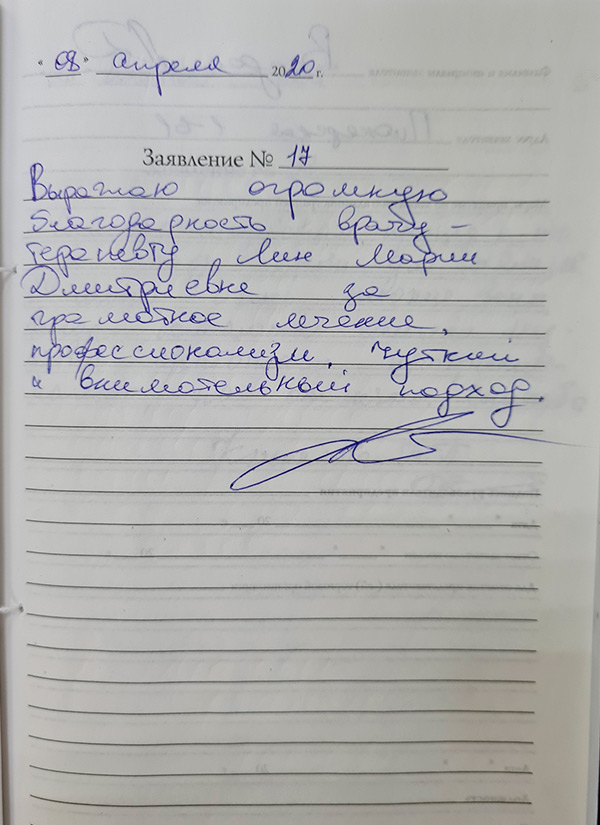 "08" апреля 2020 г.
Заявление № 17
Выражаю огромную
благодарность врачу -
терапевту Лин Марии
Дмитриевне за
грамотное лечение,
профессионализм, чуткий
и внимательный подход.